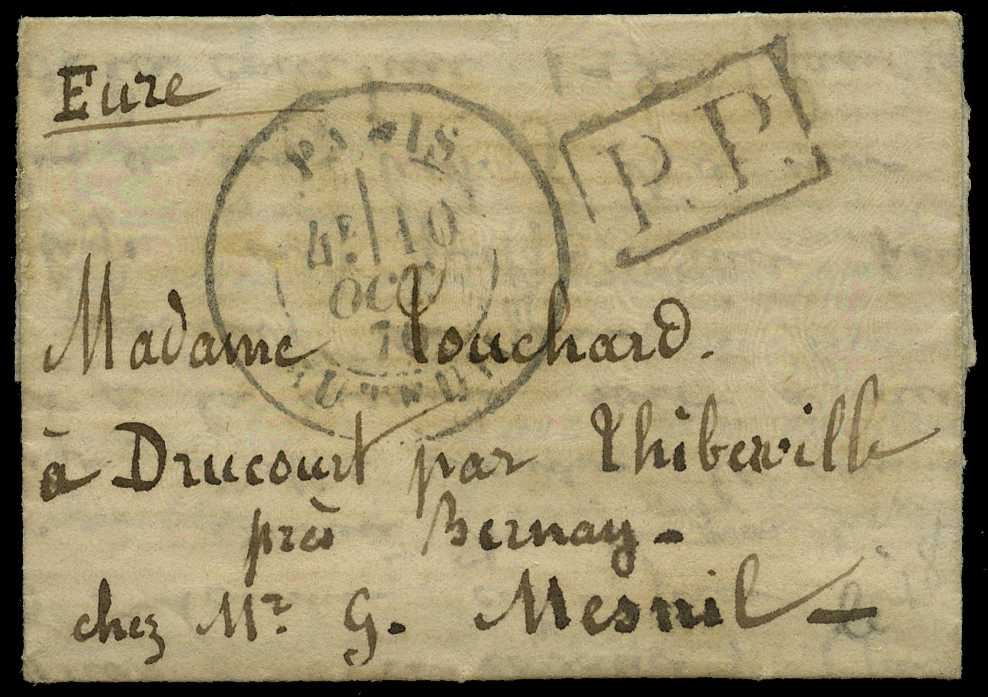 Eure
PARIS
4E. 10
OCT.
70
P.P.
Madame Touchard.
à Drucourt par Thiberville
près Bernay -
chez Mr. G. Mesnil -